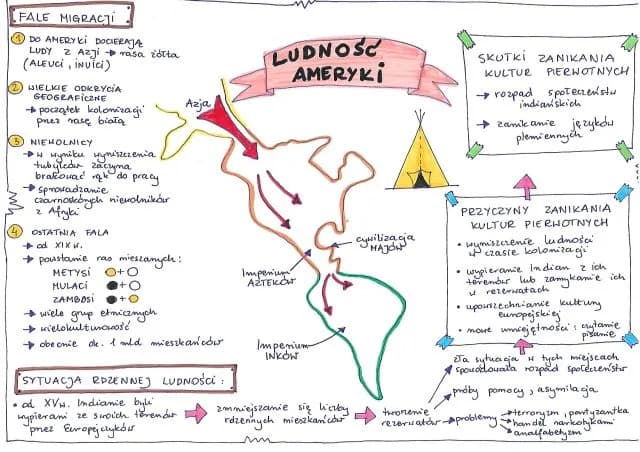 FALE MIGRACJI
1 DO AMERYKI DOCIERAJĄ
LUDY Z AZJI → rasa żółta
(ALEUCI, INUICI)
2 WIELKIE ODKRYCIA
GEOGRAFICZNE
→ początek kolonizacji
przez rasę białą
3 NIEWOLNICY
→ w wyniku wyniszczenia
tubylców zaczyna
brakować rąk do pracy
→ sprowadzanie
czarnoskórych niewolników
z Afryki
4 OSTATNIA FALA
→ od XIX w.
→ powstanie ras mieszanych:
METYSI +
MULACI +
ZAMBOSI +
→ wiele grup etnicznych
→ wielokulturowość
→ obecnie ok. 1 mld mieszkańców
LUDNOŚĆ
AMERYKI
Azja
cywilizacja
MAJÓW
Imperium
AZTEKÓW
Imperium
INKÓW
SKUTKI ZANIKANIA
KULTUR PIERWOTNYCH
→ rozpad społeczeństw
indiańskich
→ zanikanie języków
plemiennych
PRZYCZYNY ZANIKANIA
KULTUR PIERWOTNYCH
• wyniszczenie ludności
w czasie kolonizacji
• wypieranie Indian z ich
terenów lub zamykanie ich
w rezerwatach
• upowszechnianie kultury
europejskiej
• nowe umiejętności: czytanie
pisanie
SYTUACJA RDZENNEJ LUDNOŚCI:
• od XV w. Indianie byli
wypierani ze swoich terenów
przez Europejczyków
zmniejszanie się liczby
rdzennych mieszkańców
tworzenie
rezerwatów
zła sytuacja w tych miejscach
spowodowała rozpad społeczeństw
próby pomocy, asymilacja
problemy
→ terroryzm, partyzantka
→ handel narkotykami
→ analfabetyzm